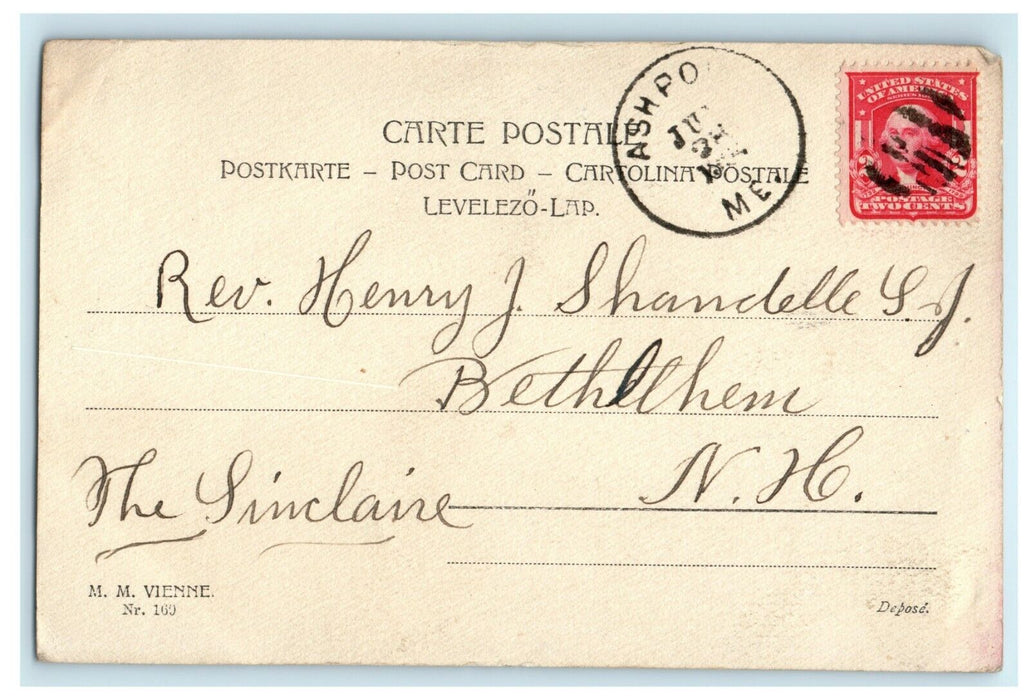 CARTE POSTALE
POSTKARTE – POST CARD – CARTOLINA POSTALE
LEVELEZŐ-LAP.
ASH PO
JU
ME.
UNITED STATES
OF AMERICA
POSTAGE
TWO CENTS
Rev. Henry J. Shandelle S.J.
Bethlehem
N. H.
The Sinclaire
M. M. VIENNE.
Nr. 169
Deposé.